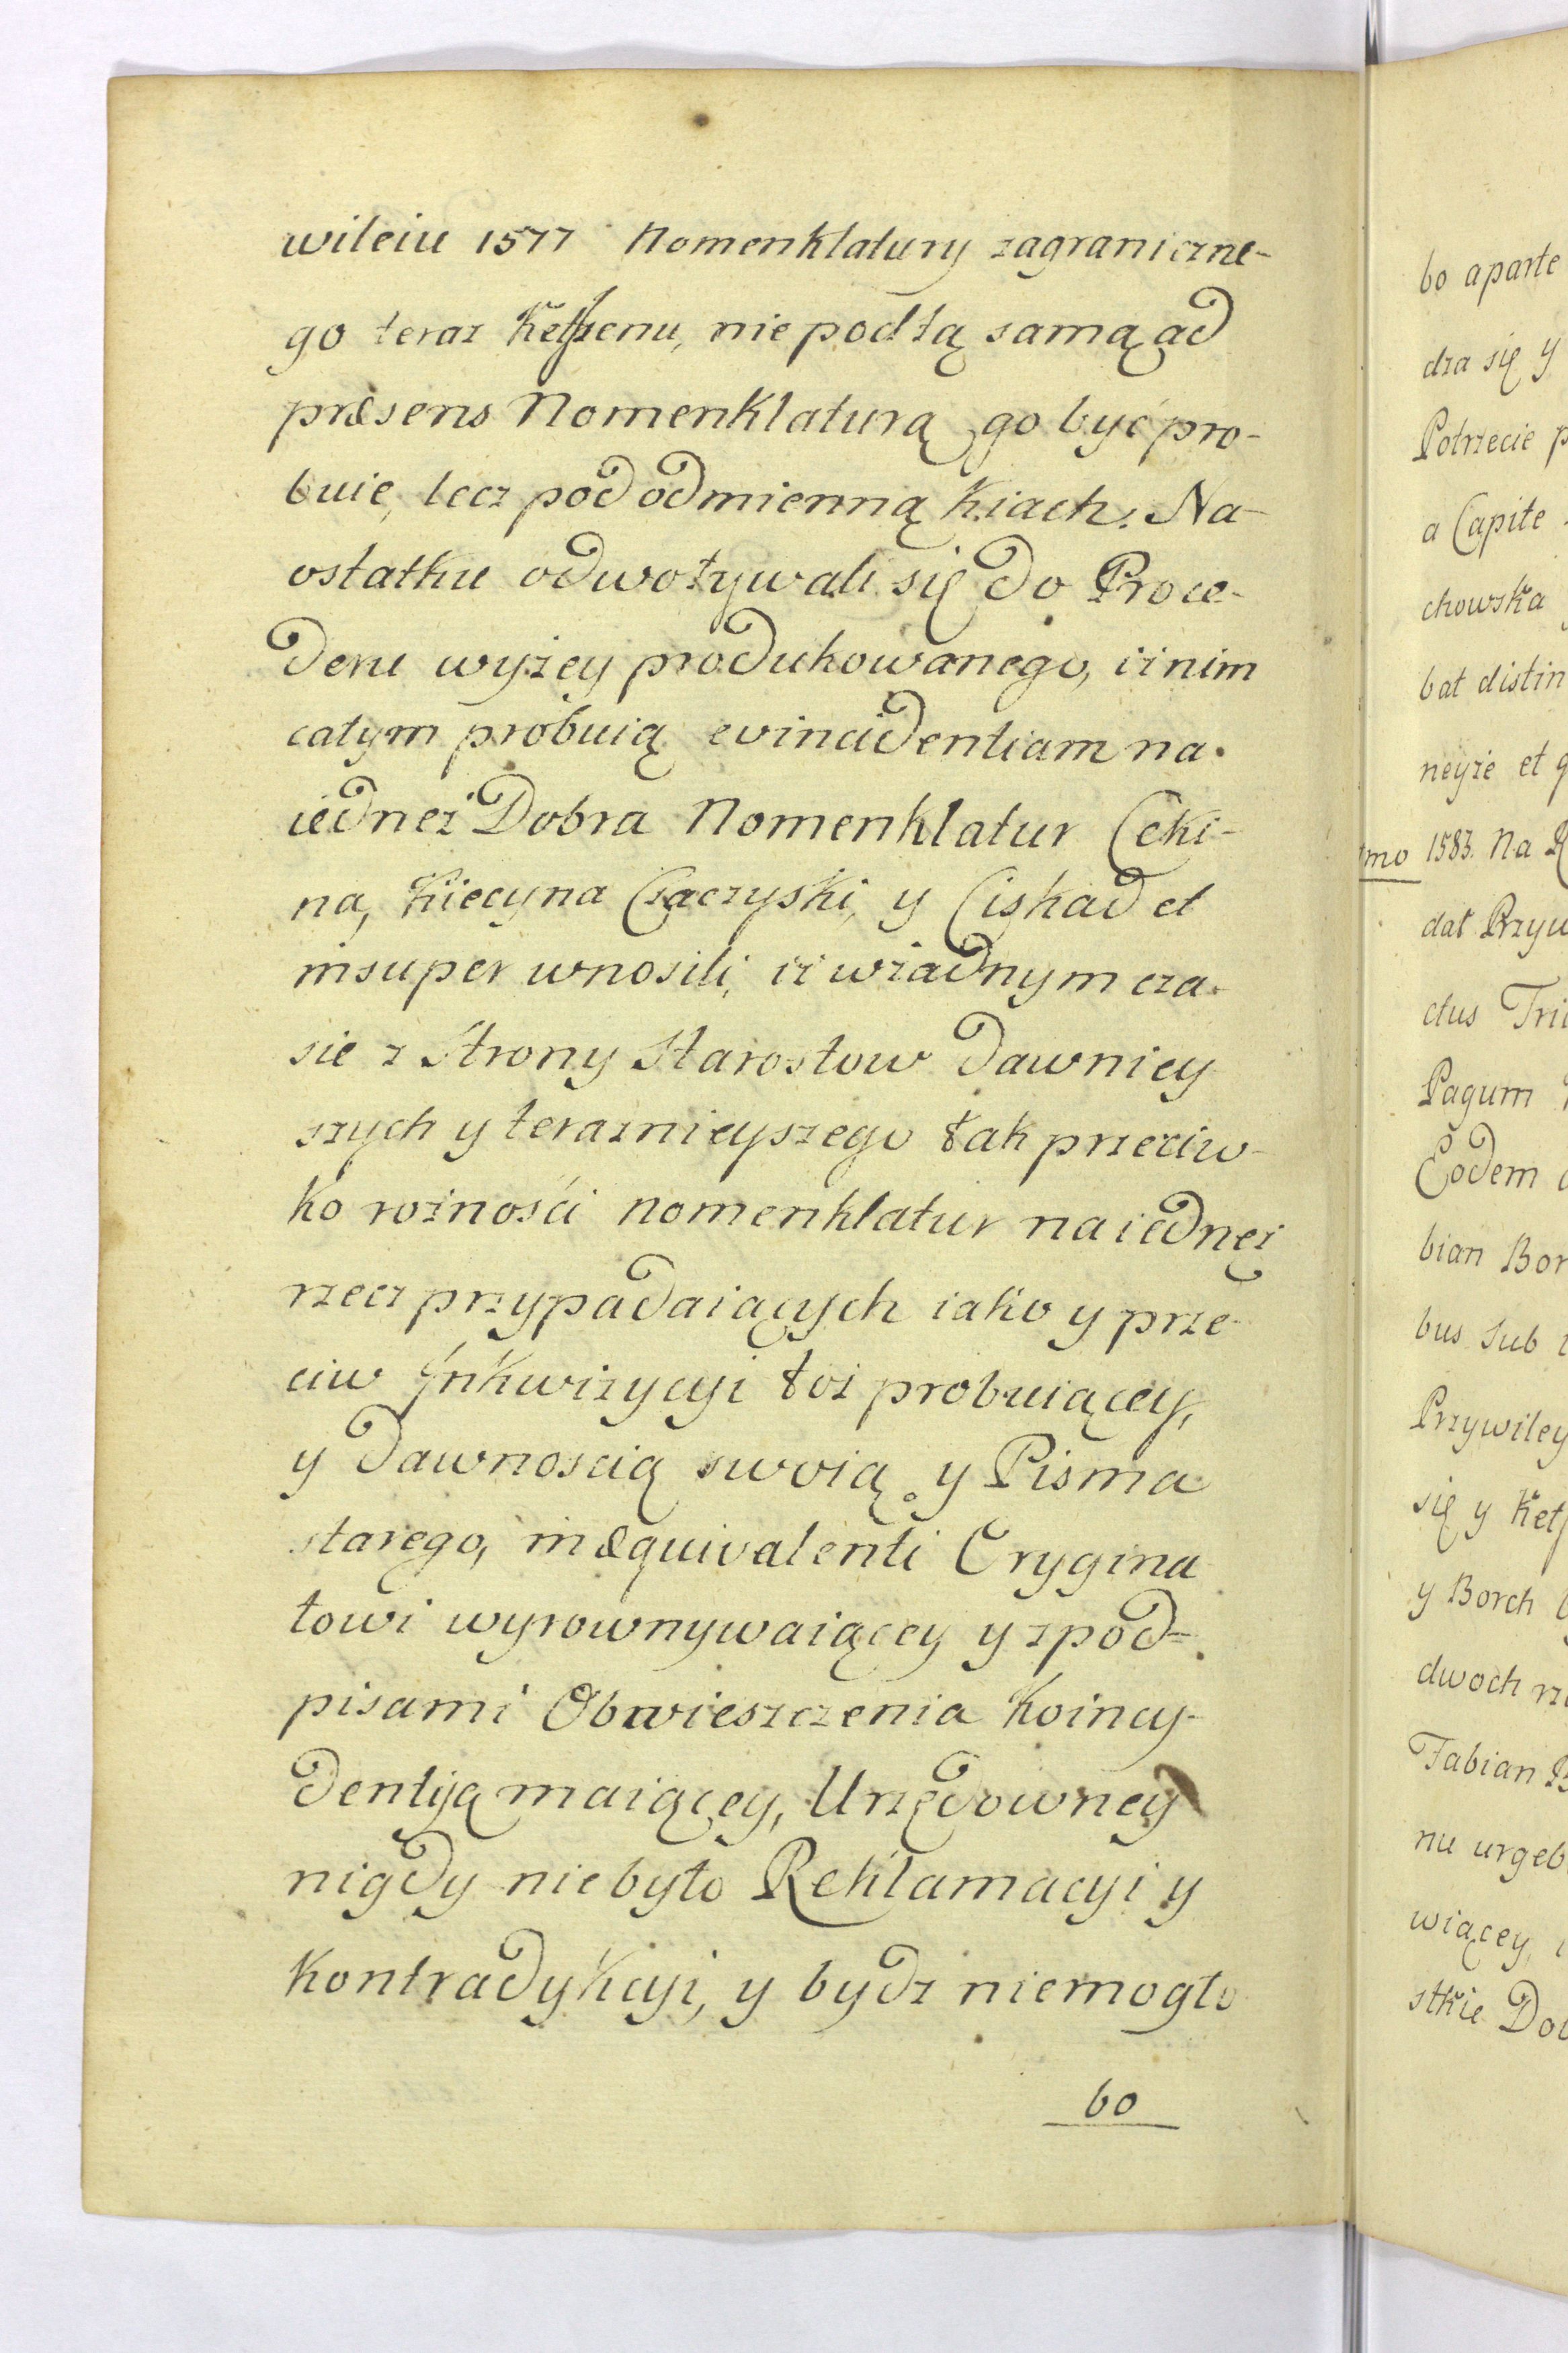 wileiu 1577 Nomenklatury zagraniczne-
go teraz Ketrzenu, nie pod tą samą ad
præsens Nomenklaturą go być pro-
buie, lecz pod odmienną Kiach. Na-
ostatku odwoływali się do Proce-
deru wyżey produkowanego, iż nim
całym probuią evincidentiam na
iedneż Dobra Nomenklatur Ceki-
na, Kiecyna Czaczyski, y Ciskad et
insuper wnosili, iż w żadnym cza-
sie z Strony Starostow dawniey
szych y teraznieyszego tak przeciw-
ko rożnośći nomenklatur na iednęż
rzecz przypadaiących iako y prze-
ciw Inkwizycyi toż probuiącey,
y dawnoscią swoią y Pisma
starego, in æquivalenti Orygina
łowi wyrownywaiącey y z pod=
pisami Obwieszczenia koincy-
dentyą maiącey, Urzędowney
nigdy nie było Reklamacyi y
Kontradykcyi, y bydz niemogło
bo
bo aparte
dza się y
Potrzecie
a Capite
chowska
bat distin
neyże et
1mo 1583. Na
dat Przyw
ctus
Pagum
Eodem
bian Bor
bus Sub
Przywiley
się y
y Borch
dwoch
Fabian
nu urgeb
wiącey,
stkie